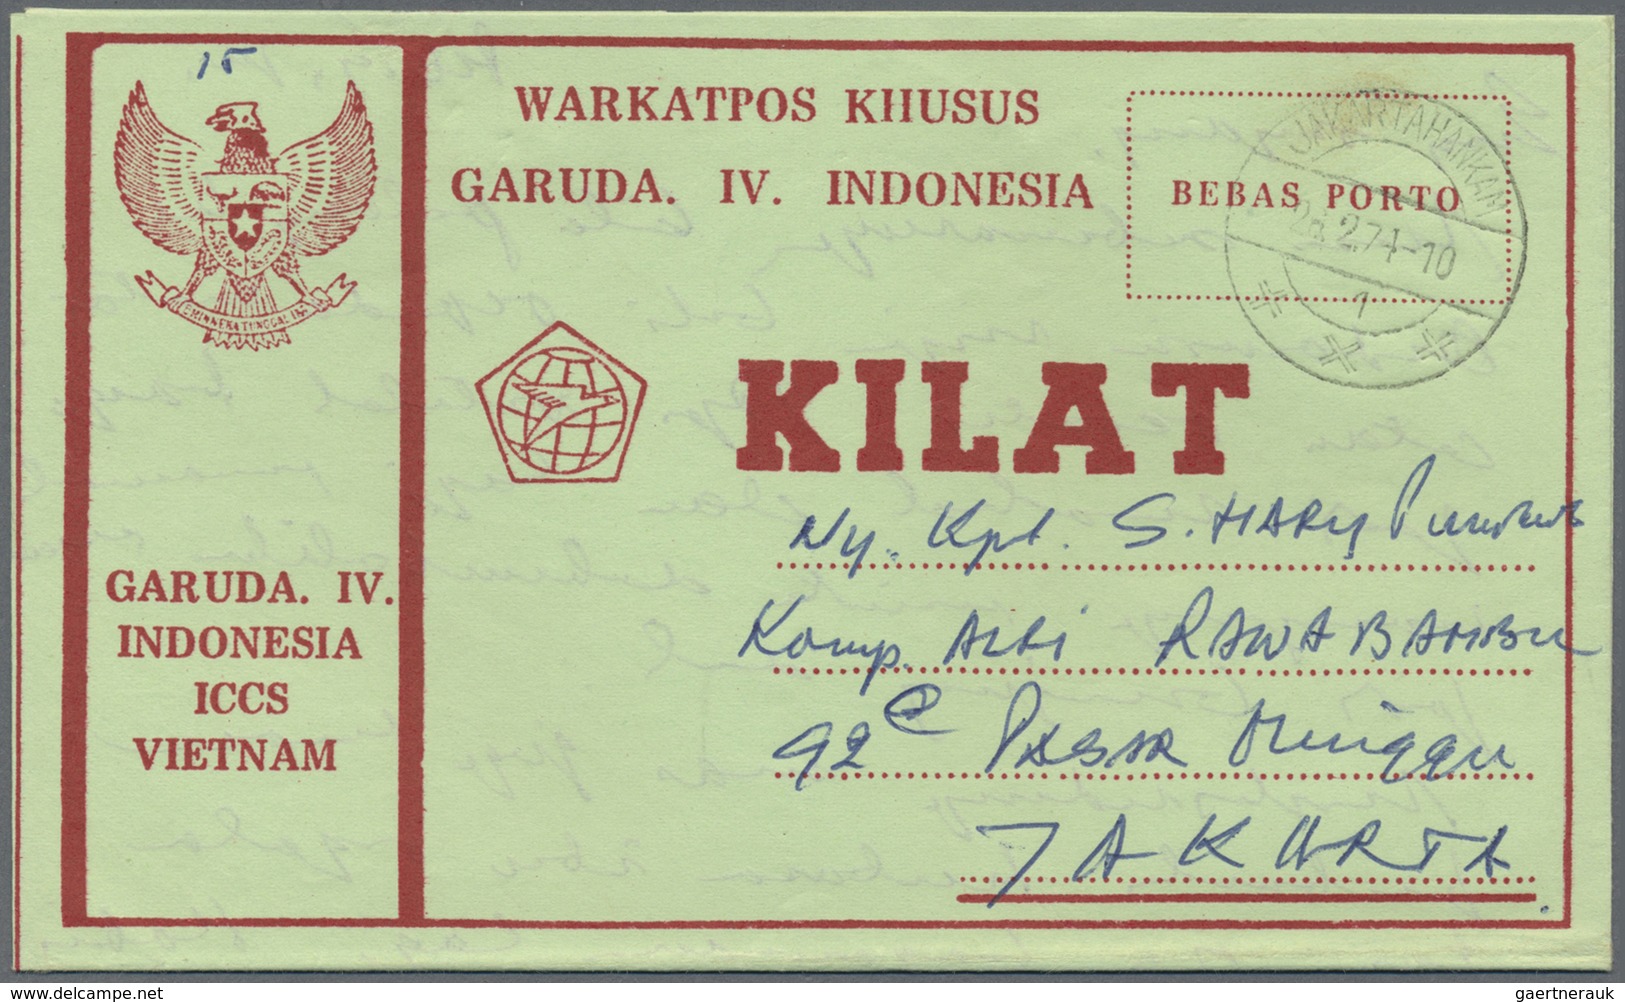 15
WARKATPOS KHUSUS
GARUDA. IV. INDONESIA
BEBAS PORTO
JAKARTAHANKAM
26.2.74-10
1
BHINNEKA TUNGGAL IKA
KILAT
GARUDA. IV.
INDONESIA
ICCS
VIETNAM
Ny. Kpt. S. HARY
Komp. RAWA BAMBU
92 PASAR Minggu
JAKARTA
delcampe.net
gaertnerauk